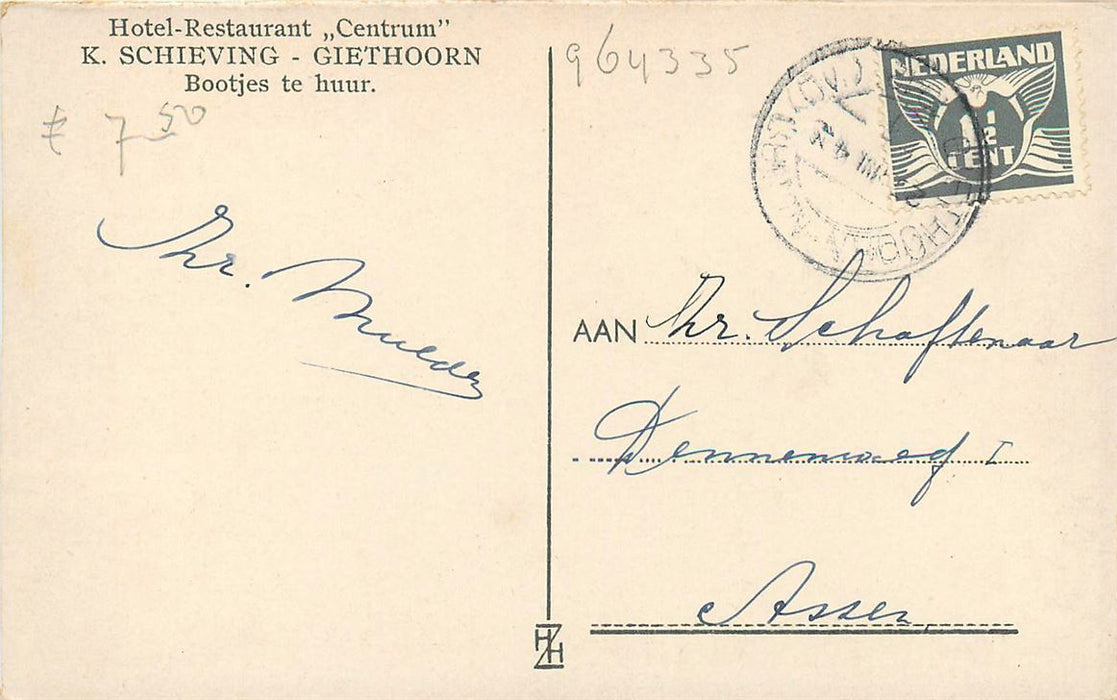 Hotel-Restaurant „Centrum”
K. SCHIEVING - GIETHOORN
Bootjes te huur.
€ 7 50
964335
NEDERLAND
1½
CENT
GIETHOORN
Mulder
AAN Schaftenaar
Dennenweg 1
Assen
HZH